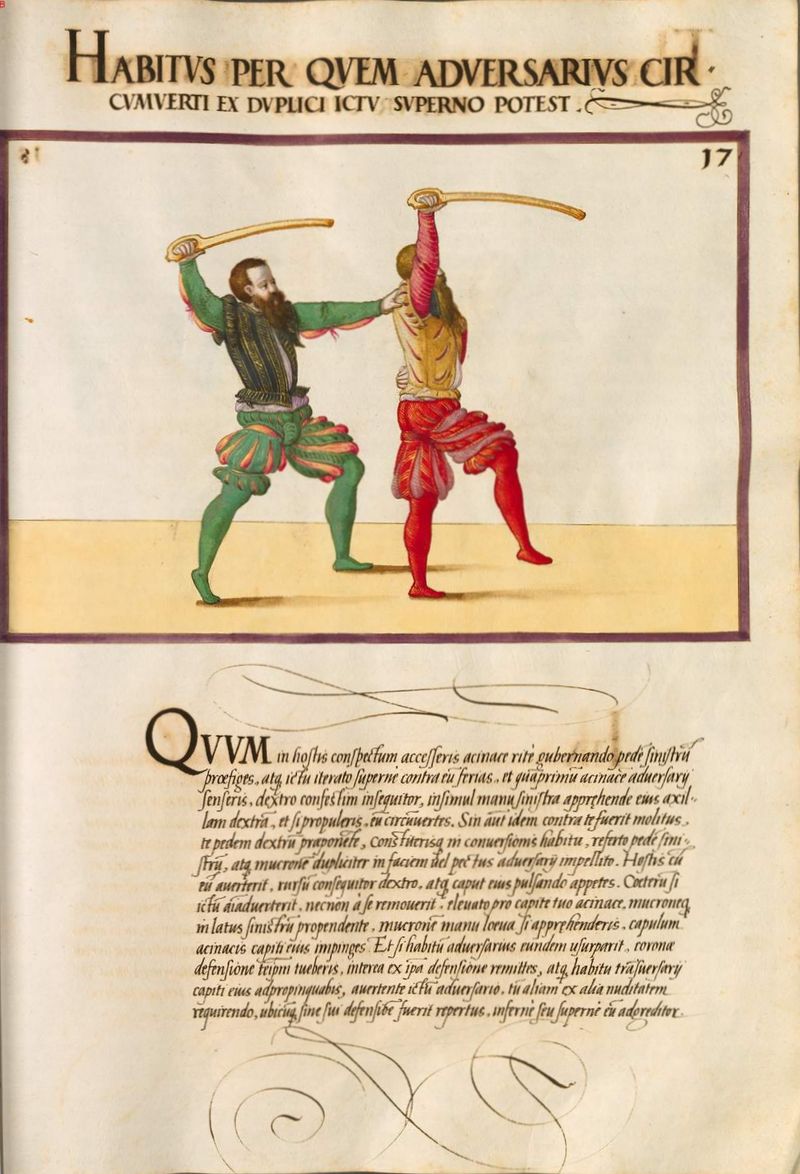 HABITVS PER QVEM ADVERSARIVS CIR
CVMVERTI EX DVPLICI ICTV SVPERNO POTEST.
17
QVVM in hostis conspectum accesseris acinace ritè gubernando pedē sinistrū
præfiges, atq̨ ictu iterato supernè contra eū ferias, et quāprimū acinace adversarÿ
senseris, dextro confestim insequitor, insimul manu sinistra apprehende eius axil-
lam dextrā, et si propuleris, eū circūvertes. Sin aūt idem contra te fuerit molitus,
te pedem dextrū præponere, Constituerisq̨ in conversionis habitu, referto pede sini-
strū, atq̨ mucronē dupliciter in faciem vel pectus adversarÿ impellito. Hostis cū
eū averterit, rursū consequitor dextro, atq̨ caput eius pulsando appetes. Cœterū si
ictū aīadverterit, necnon à se removerit, elevato pro capite tuo acinace, mucroneq̨
in latus sinistrū propendente, mucronē manu loeva si apprehenderis, capulum
acinacis capiti eius impinges. Et si habitū adversarius eundem usurparit, coronæ
defensione teipm̄ tueberis, interea ex ipa defensione remittes, atq̨ habitu trāsversarÿ
capiti eius adpropinquabis, avertente ictū adversario, tū aliam ex alia nuditatem
requirendo, ubicūq̨ sine sui defensiōe fuerit repertus, infernè seu supernè eū adgreditor.